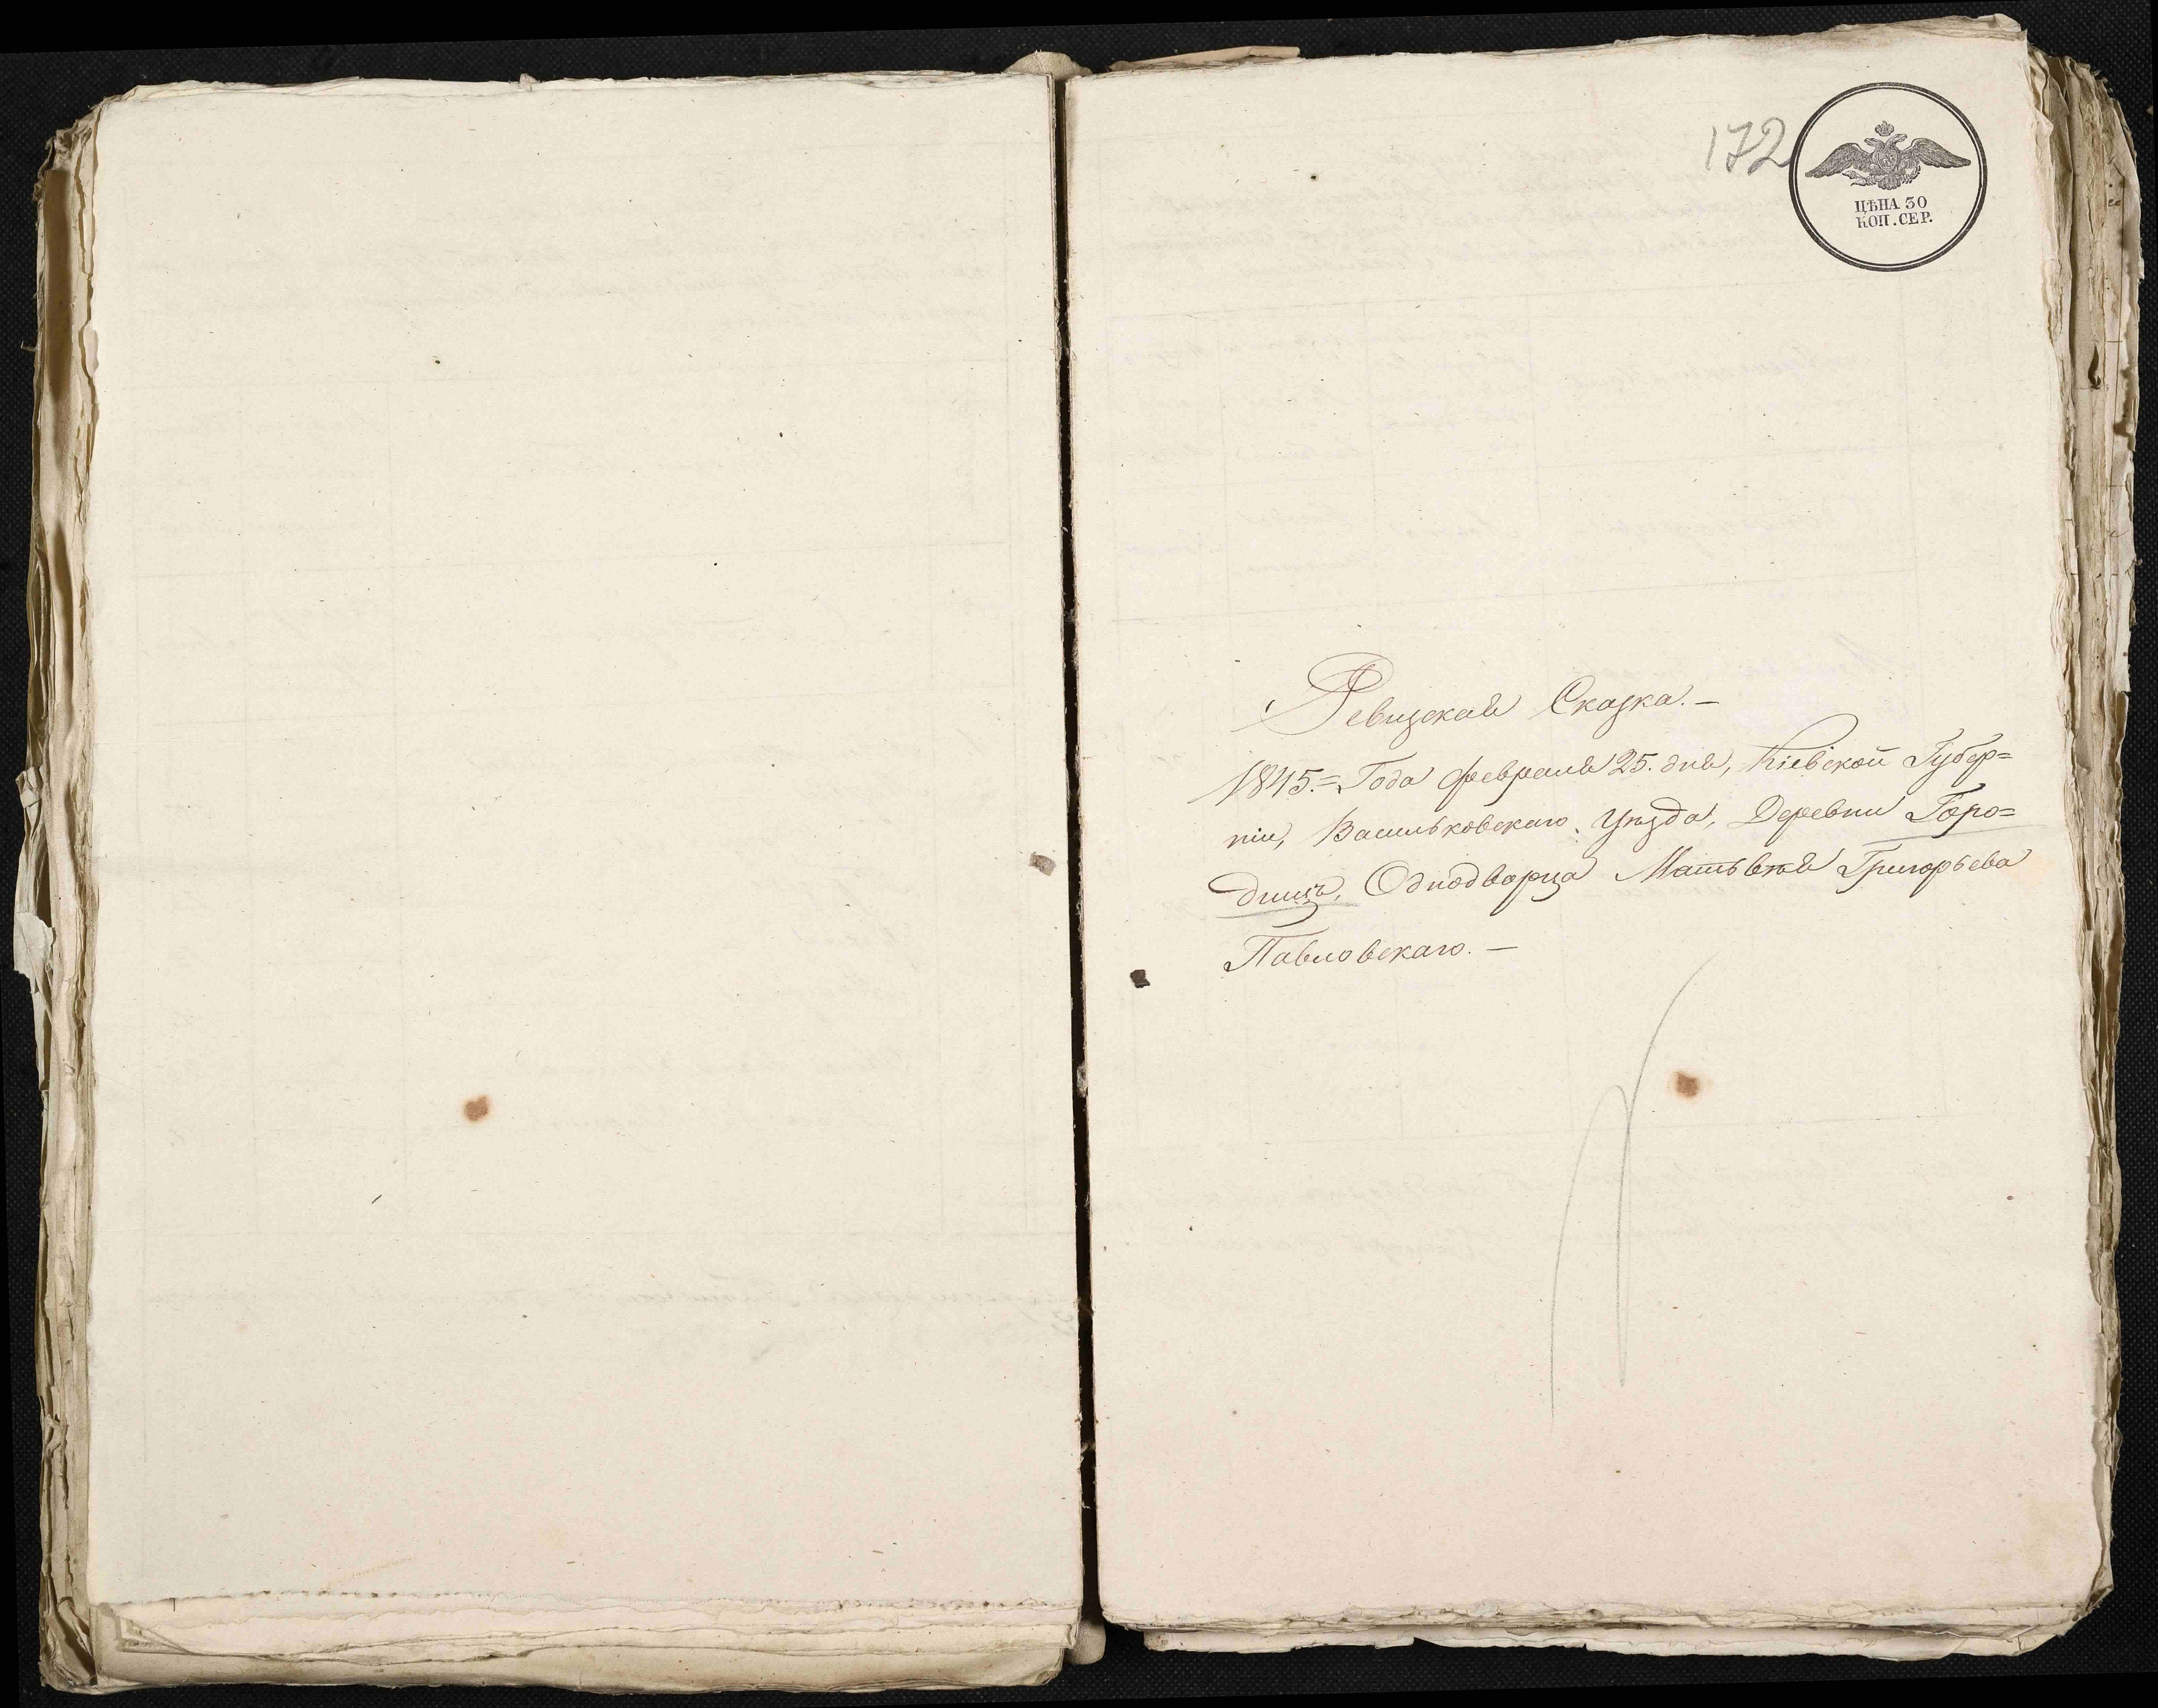 172
ЦѢНА 30
КОП. СЕР.
Ревизская Сказка. —
1845.= Года февраля 25. дня, Кіевской Губер=
ніи, Васильковскаго Уѣзда, Деревни Горо=
дищъ, Однодворца Матьвѣя Григорьева
Павловскаго. —